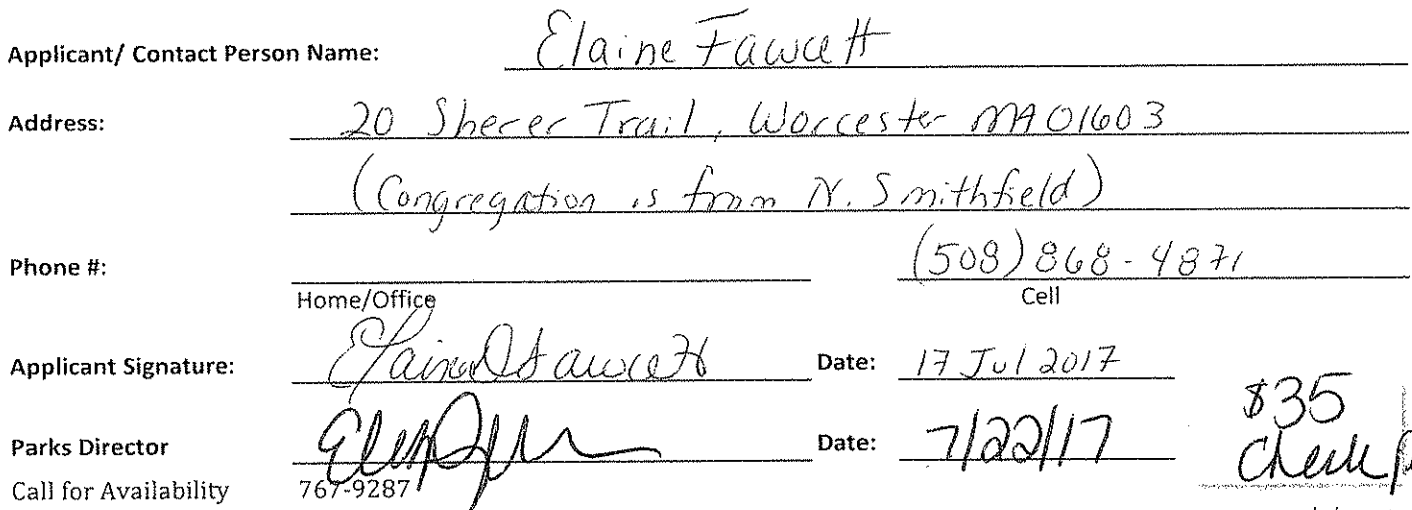 Applicant/ Contact Person Name: Elaine Fawcett
Address: 20 Sherer Trail, Worcester MA 01603
(Congregation is from N. Smithfield)
Phone #: (508) 868-4871
Home/Office Cell
Applicant Signature: Elaine D Fawcett Date: 17 Jul 2017
$35
Parks Director Date: 7/22/17 Check
Call for Availability 767-9287